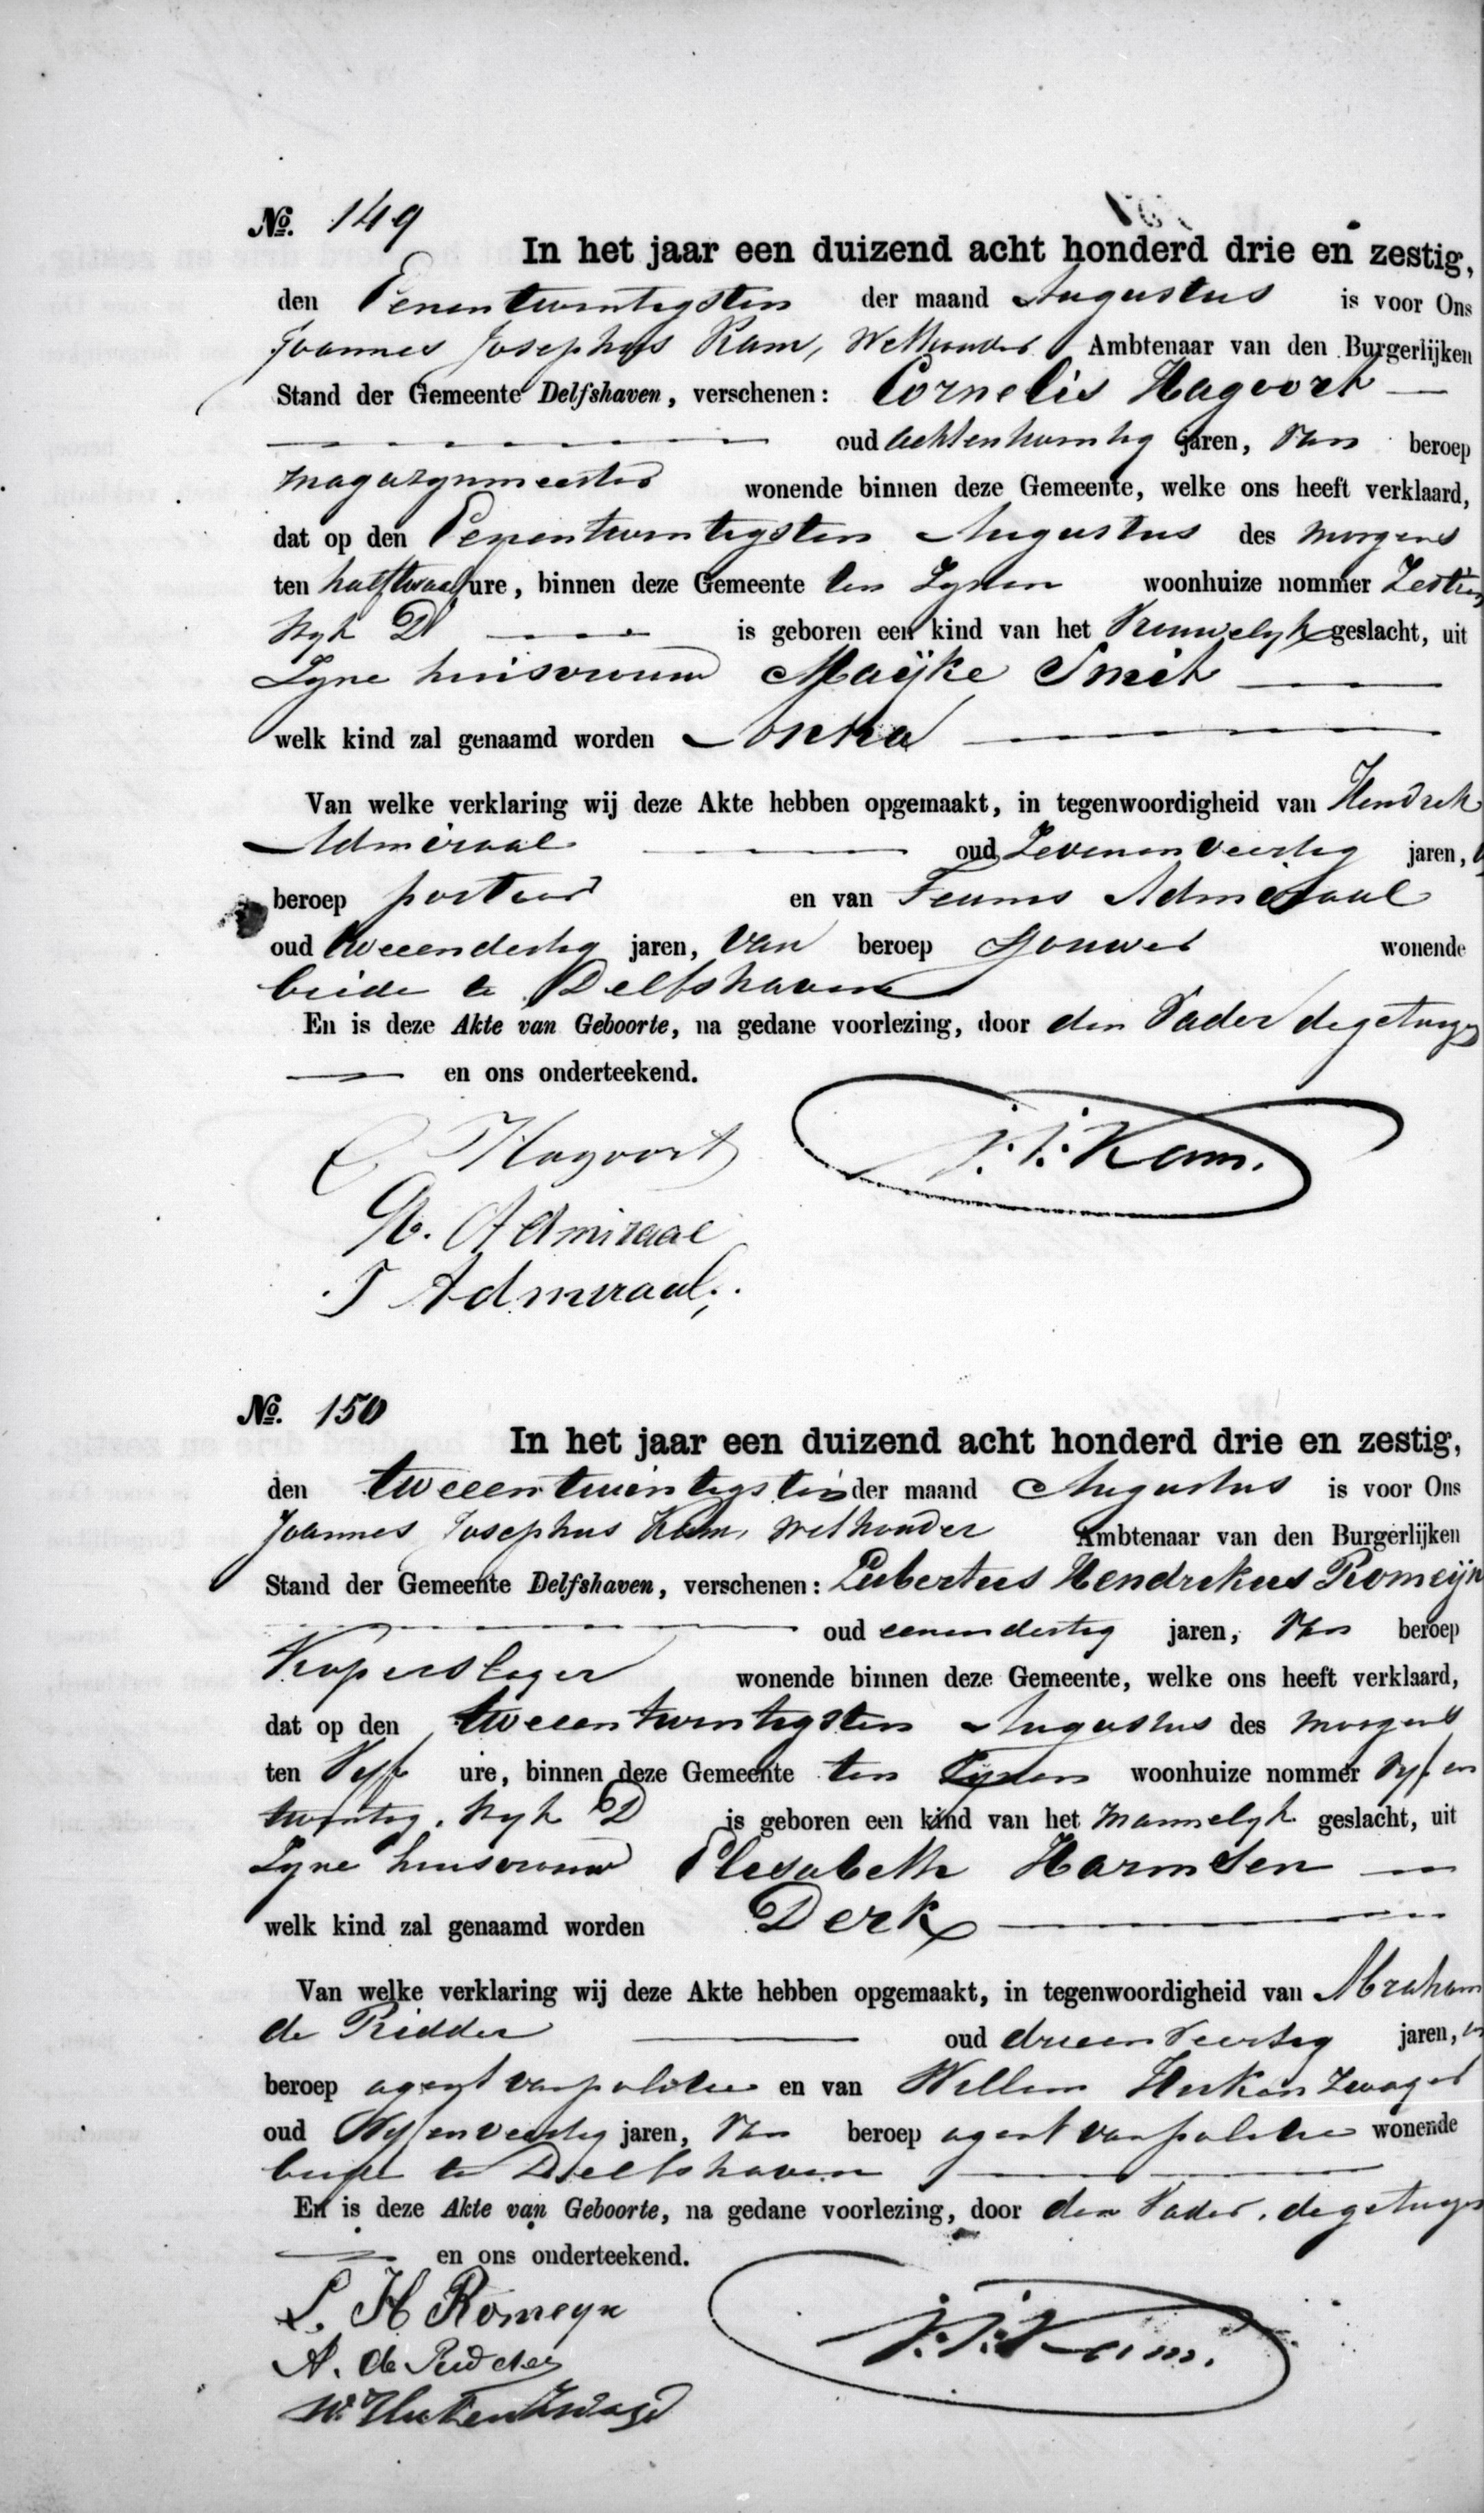 No. 149
In het jaar een duizend acht honderd drie en zestig,
den Eenentwintigsten der maand Augustus is voor Ons
Joannes Josephus Kam, Wethouder Ambtenaar van den Burgerlijken
Stand der Gemeente Delfshaven, verschenen: Cornelis Hagoort
oud achtentwintig jaren, van beroep
magazynmeester wonende binnen deze Gemeente, welke ons heeft verklaard,
dat op den Eenentwintigsten Augustus des morgens
ten half twaalf ure, binnen deze Gemeente ten Zynen woonhuize nommer Zestien
Wyk D is geboren een kind van het Vrouwelyk geslacht, uit
Zyne huisvrouw Maijke Smit
welk kind zal genaamd worden
Van welke verklaring wij deze Akte hebben opgemaakt, in tegenwoordigheid van Hendrik
Admiraal oud Zevenenveertig jaren,
beroep en van Teunis Admiraal
oud tweeendertig jaren, van beroep wonende
beide te Delfshaven
En is deze Akte van Geboorte, na gedane voorlezing, door den Vader de getuigen
en ons onderteekend.
C Hagoort J. J. Kam.
H. Admiraal
T Admiraal
No. 150
In het jaar een duizend acht honderd drie en zestig,
den tweeentwintigsten der maand Augustus is voor Ons
Joannes Josephus Kam, Wethouder Ambtenaar van den Burgerlijken
Stand der Gemeente Delfshaven, verschenen: Lubertus Hendrikus Romeijn
oud eenendertig jaren, van beroep
Koperslager wonende binnen deze Gemeente, welke ons heeft verklaard,
dat op den tweeentwintigsten Augustus des morgens
ten Vyf ure, binnen deze Gemeente ten Zynen woonhuize nommer vyf en
twintig, Wyk D is geboren een kind van het Mannelyk geslacht, uit
Zyne huisvrouw Elisabeth Harmsen
welk kind zal genaamd worden Derk
Van welke verklaring wij deze Akte hebben opgemaakt, in tegenwoordigheid van Abraham
de Ridder oud drieenveertig jaren,
beroep agent van politie en van Willem Zwager
oud Vyfenveertig jaren, van beroep agent van politie wonende
beide te Delfshaven
En is deze Akte van Geboorte, na gedane voorlezing, door den Vader, de getuigen
en ons onderteekend.
L. H Romeyn J. J. Kam.
A. de Ridder